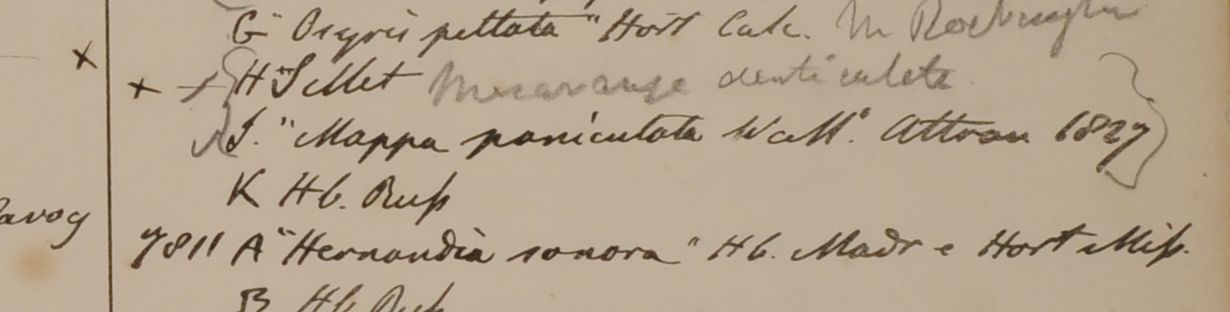 G " Osyris peltata " Hort Calc. M Roxburghii
x
x H Sillet Macaranga denticulata
J. " Mappa paniculata Wall". Attran 1827
K Hb. Russ
7811 A " Hernandia sonora " Hb. Madr e Hort Miss.
B Hb Russ